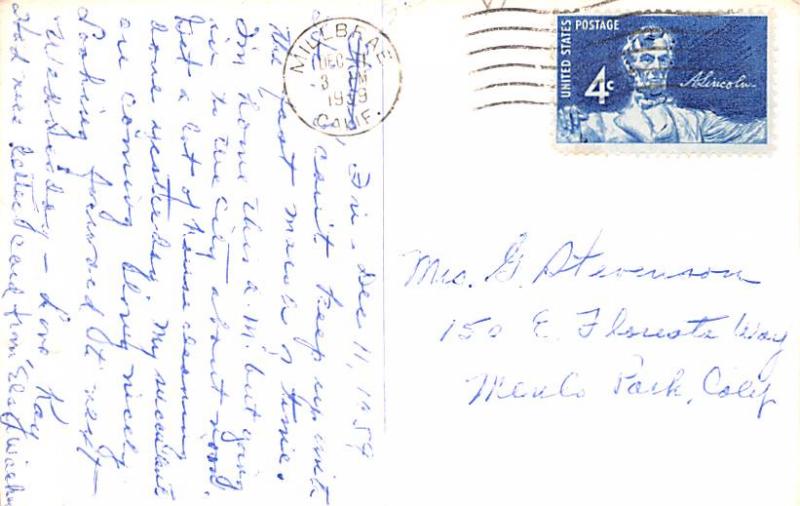 Fri - Dec 11, 1959
can't keep up with
the fast march of time.
I'm home this a.m. but going
in to the city about noon.
Got a lot of house cleaning
done yesterday. My succulents
are coming along nicely
Looking forward to next
Wednesday - Love Kay
Had nice letter & card from
MILLBRAE
DEC 11
3 PM
1959
CALIF.
UNITED STATES POSTAGE
4c
A. Lincoln
Mrs. G. Stevenson
150 E. Floresta Way
Menlo Park, Calif